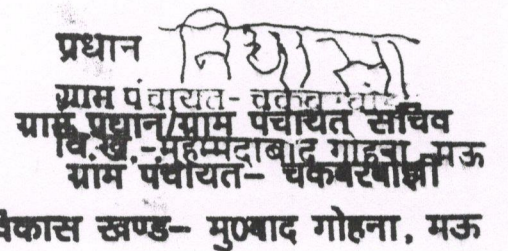 प्रधान
ग्राम पंचायत-
ग्राम प्रधान/ग्राम पंचायत सचिव
वि.ख.-मुहम्मदाबाद गोहना, मऊ
ग्राम पंचायत- चकबरबोझी
विकास खण्ड- मु0बाद गोहना, मऊ